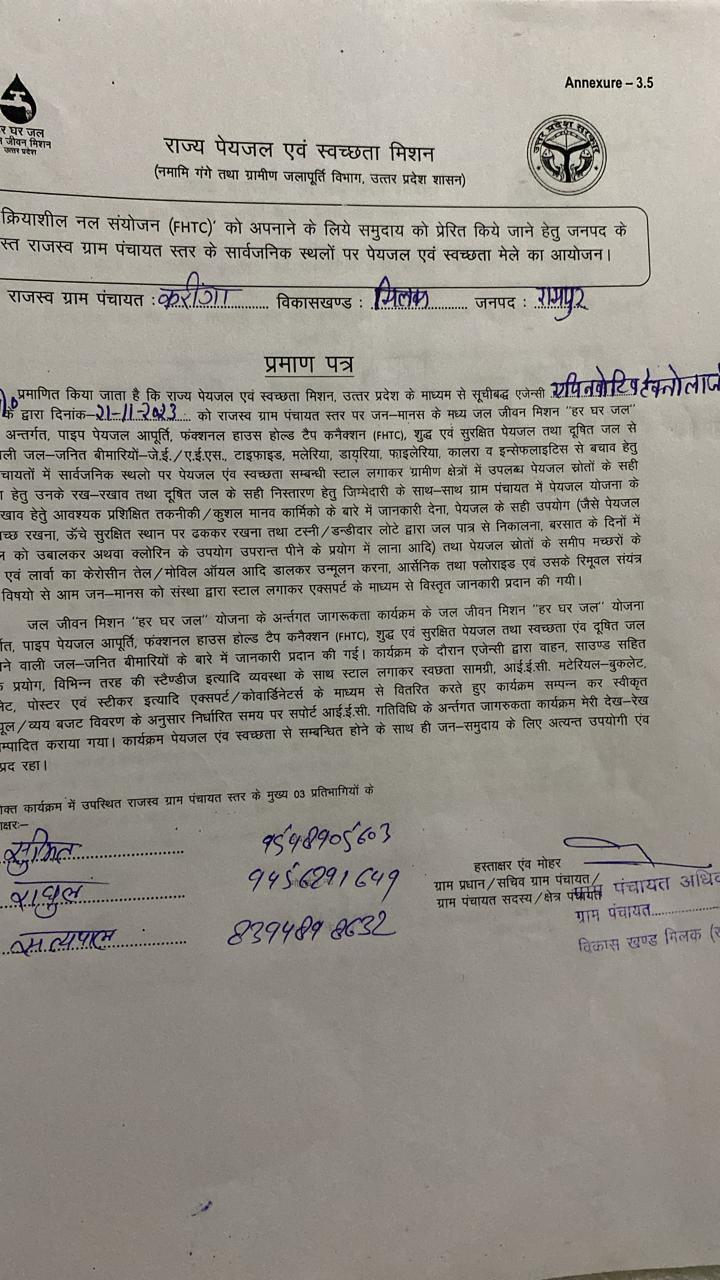 Annexure – 3.5
र घर जल
जीवन मिशन
उत्तर प्रदेश
उत्तर प्रदेश सरकार
राज्य पेयजल एवं स्वच्छता मिशन
(नमामि गंगे तथा ग्रामीण जलापूर्ति विभाग, उत्तर प्रदेश शासन)
क्रियाशील नल संयोजन (FHTC)' को अपनाने के लिये समुदाय को प्रेरित किये जाने हेतु जनपद के
स्त राजस्व ग्राम पंचायत स्तर के सार्वजनिक स्थलों पर पेयजल एवं स्वच्छता मेले का आयोजन।
राजस्व ग्राम पंचायत : करीगा विकासखण्ड : मिलक जनपद : रामपुर
प्रमाण पत्र
प्रमाणित किया जाता है कि राज्य पेयजल एवं स्वच्छता मिशन, उत्तर प्रदेश के माध्यम से सूचीबद्ध एजेन्सी
के द्वारा दिनांक-21-11-2023 को राजस्व ग्राम पंचायत स्तर पर जन-मानस के मध्य जल जीवन मिशन "हर घर जल"
अन्तर्गत, पाइप पेयजल आपूर्ति, फंक्शनल हाउस होल्ड टैप कनैक्शन (FHTC), शुद्ध एवं सुरक्षित पेयजल तथा दूषित जल से
ली जल-जनित बीमारियों-जे.ई./ए.ई.एस., टाइफाइड, मलेरिया, डायरिया, फाइलेरिया, कालरा व इन्सेफलाइटिस से बचाव हेतु
चायतों में सार्वजनिक स्थलो पर पेयजल एंव स्वच्छता सम्बन्धी स्टाल लगाकर ग्रामीण क्षेत्रों में उपलब्ध पेयजल स्रोतों के सही
हेतु उनके रख-रखाव तथा दूषित जल के सही निस्तारण हेतु जिम्मेदारी के साथ-साथ ग्राम पंचायत में पेयजल योजना के
खाव हेतु आवश्यक प्रशिक्षित तकनीकी/कुशल मानव कार्मिको के बारे में जानकारी देना, पेयजल के सही उपयोग (जैसे पेयजल
च्छ रखना, ऊँचे सुरक्षित स्थान पर ढककर रखना तथा टस्नी/डन्डीदार लोटे द्वारा जल पात्र से निकालना, बरसात के दिनों में
ल को उबालकर अथवा क्लोरिन के उपयोग उपरान्त पीने के प्रयोग में लाना आदि) तथा पेयजल स्रोतों के समीप मच्छरों के
एवं लार्वा का केरोसीन तेल/मोविल ऑयल आदि डालकर उन्मूलन करना, आर्सेनिक तथा फ्लोराइड एवं उसके रिमूवल संयंत्र
विषयो से आम जन-मानस को संस्था द्वारा स्टाल लगाकर एक्सपर्ट के माध्यम से विस्तृत जानकारी प्रदान की गयी।
जल जीवन मिशन "हर घर जल" योजना के अर्न्तगत जागरूकता कार्यक्रम के जल जीवन मिशन "हर घर जल" योजना
र्गत, पाइप पेयजल आपूर्ति, फंक्शनल हाउस होल्ड टैप कनैक्शन (FHTC), शुद्ध एवं सुरक्षित पेयजल तथा स्वच्छता एंव दूषित जल
ने वाली जल-जनित बीमारियों के बारे में जानकारी प्रदान की गई। कार्यक्रम के दौरान एजेन्सी द्वारा वाहन, साउण्ड सहित
क प्रयोग, विभिन्न तरह की स्टैण्डीज इत्यादि व्यवस्था के साथ स्टाल लगाकर स्वछता सामग्री, आई.ई.सी. मटेरियल-बुकलेट,
लेट, पोस्टर एवं स्टीकर इत्यादि एक्सपर्ट/कोवार्डिनेटर्स के माध्यम से वितरित करते हुए कार्यक्रम सम्पन्न कर स्वीकृत
यूल/व्यय बजट विवरण के अनुसार निर्धारित समय पर सपोर्ट आई.ई.सी. गतिविधि के अर्न्तगत जागरुकता कार्यक्रम मेरी देख-रेख
म्पादित कराया गया। कार्यक्रम पेयजल एंव स्वच्छता से सम्बन्धित होने के साथ ही जन-समुदाय के लिए अत्यन्त उपयोगी एंव
प्रद रहा।
क्त कार्यक्रम में उपस्थित राजस्व ग्राम पंचायत स्तर के मुख्य 03 प्रतिभागियों के
क्षर:-
सुमित 9548905603
राहुल 9456291649
सत्यपाल 8394898632
हस्ताक्षर एंव मोहर
ग्राम प्रधान/सचिव ग्राम पंचायत/
ग्राम पंचायत सदस्य/क्षेत्र पंचायत
ग्राम पंचायत अधि
ग्राम पंचायत
विकास खण्ड मिलक